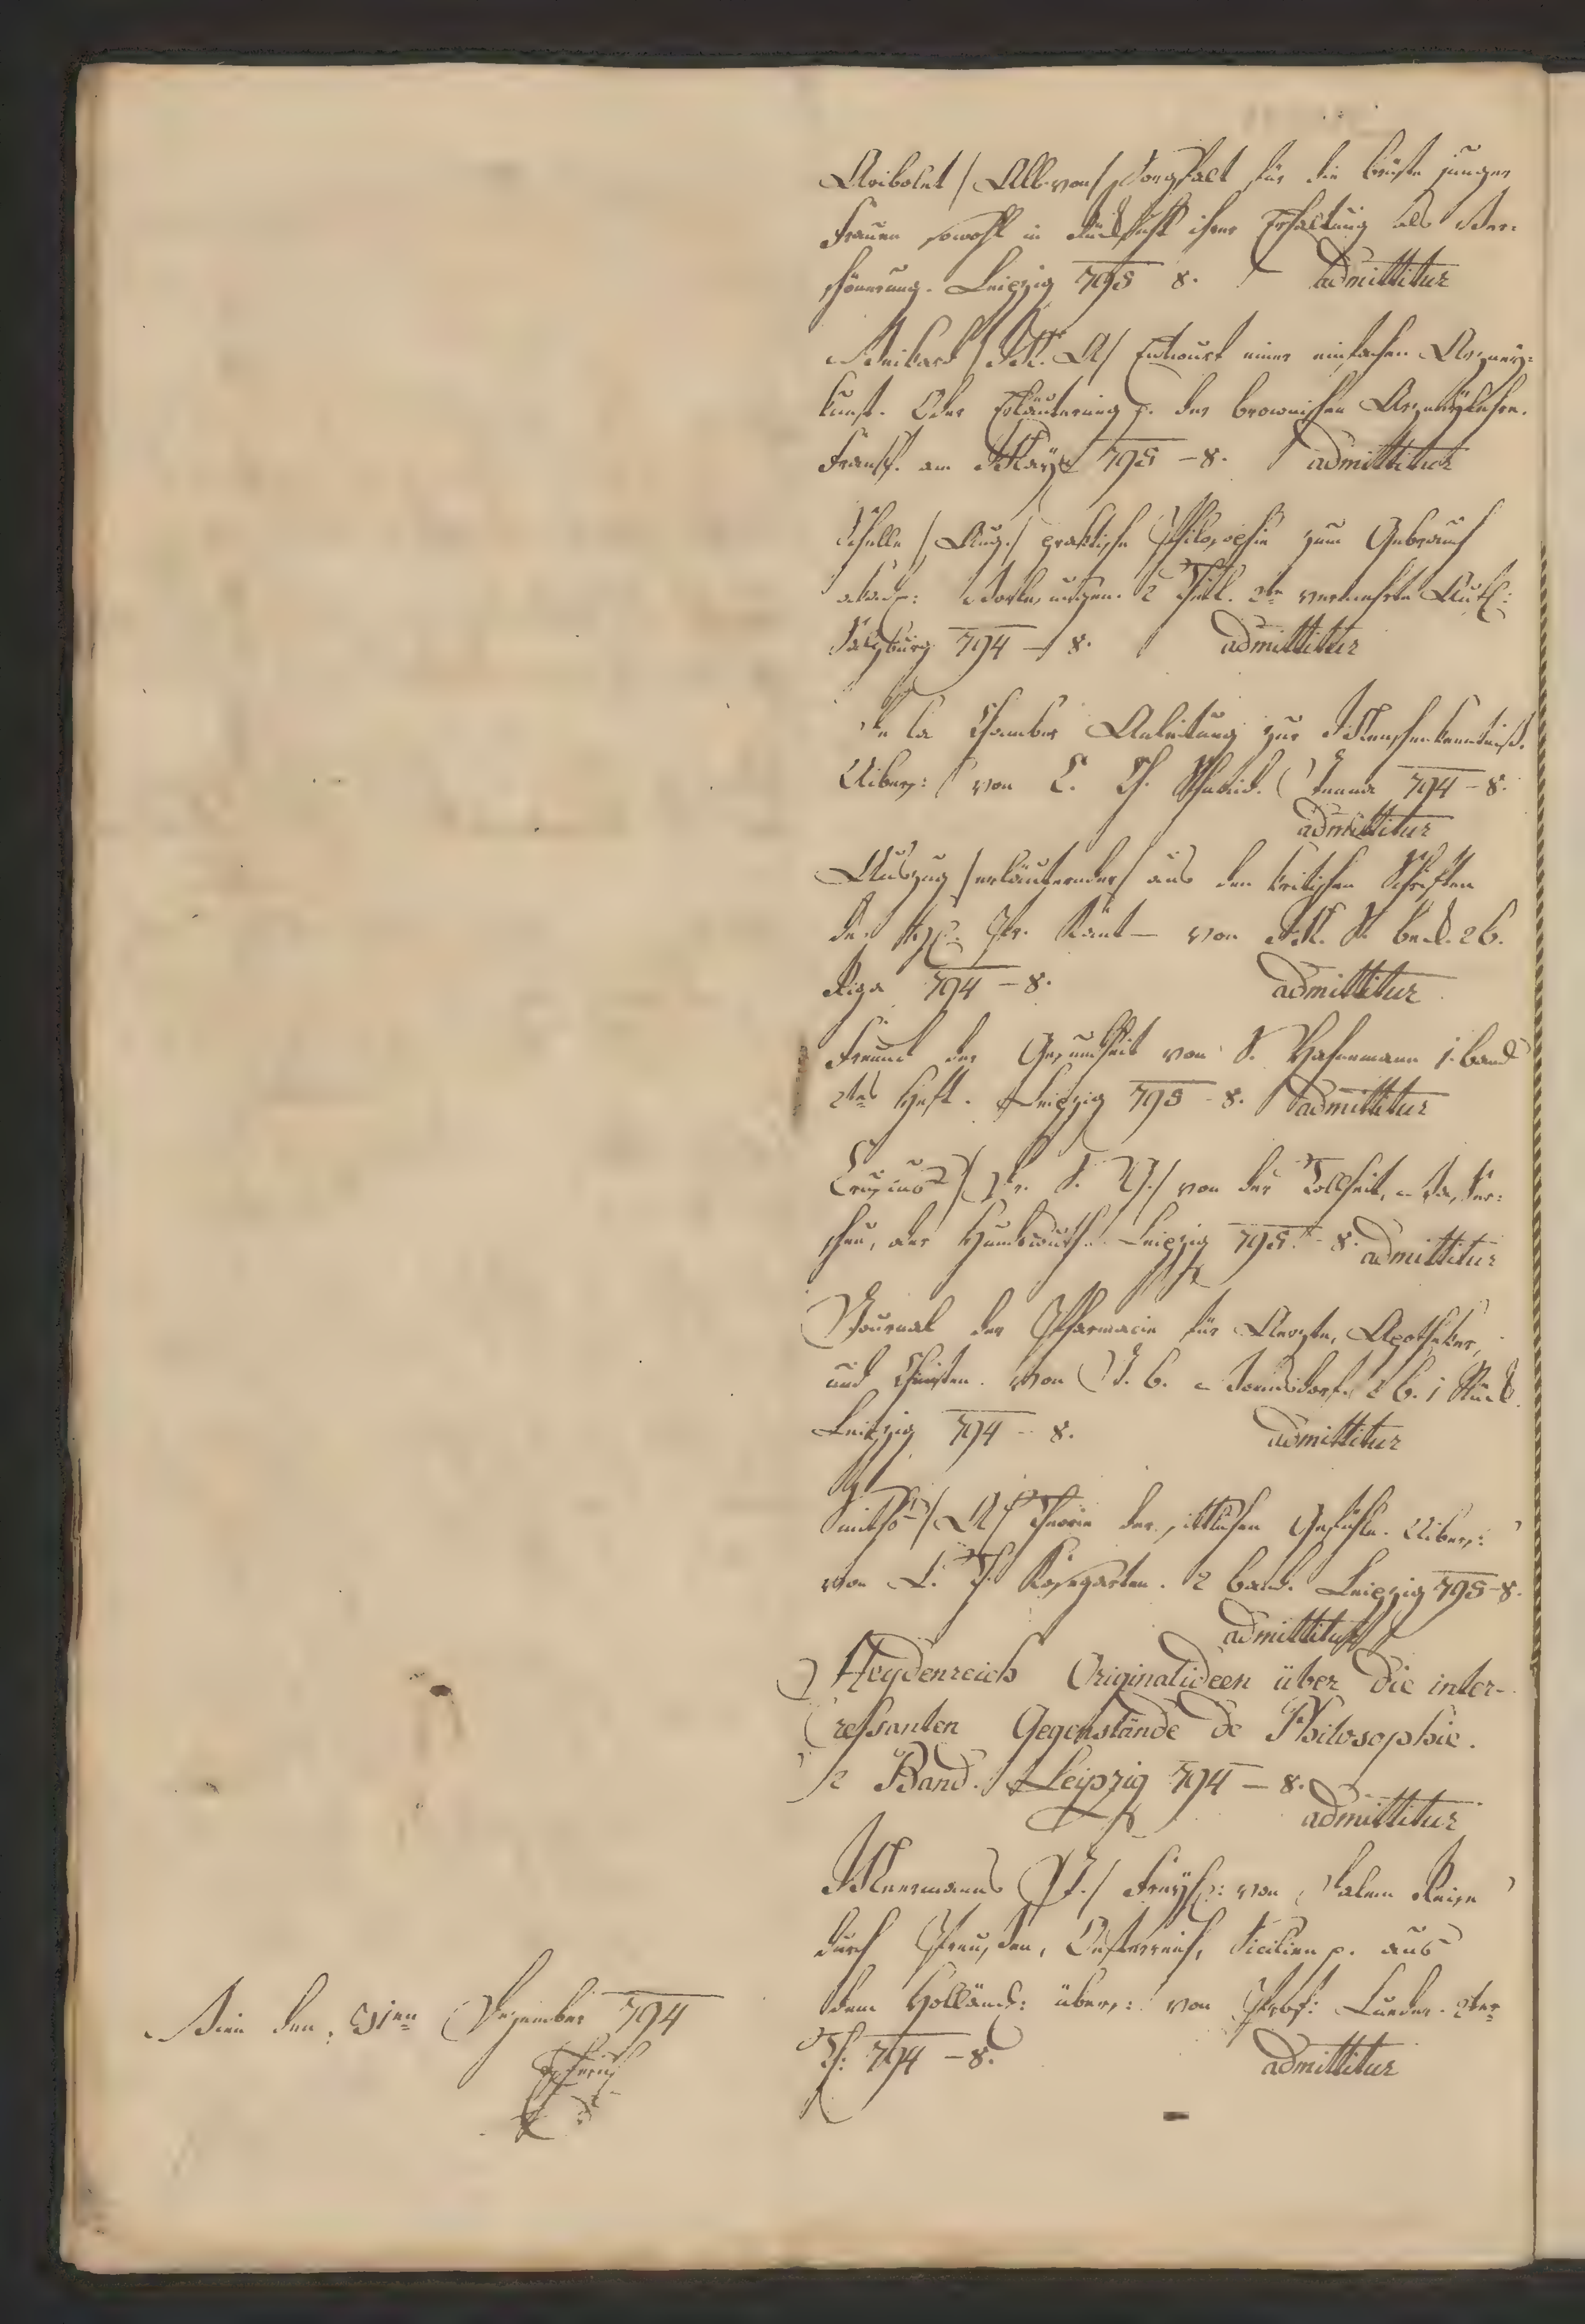 Aribolet /Alb. von/ Sorgfalt für die Brüste junger
Frauen sowohl in Rücksicht ihrer Erhaltung als Ver-
schönerung. Leipzig 795 8. admittitur
Weikard /M. A/ Entwurf einer einfachen Arzney-
kunst. Oder Erläuterung p. der brownischen Arzneylehre.
Frankf. am Mayn 795 – 8. admittitur
Schelle /Aug./ praktische Philosophie zum Gebrauch
akad: Vorlesungen. 2 Theil. 2te vermehrte Aufl:
Salzburg 794 – 8. admittitur
De la Chambre Anleitung zur Menschenkenntniß.
Uibers: von C. Ch. Schmid. Jenna 794 – 8.
admittitur
Auszug /erläuternder/ aus den kritischen Schriften
des H: Pr. Kant – von M. S. Beck. 2 B.
Riga 794 – 8. admittitur
Freund der Gesundheit von S. Hahnemann 1. Band
2tes Heft. Leipzig 795 – 8. admittitur
von der Tollheit, Wasser-
scheu, oder Hundswuth. Leipzig 795. – 8. admittitur
Journal der Pharmacie für Aerzte, Apotheker,
und Chimisten. Von J. B. Tromsdorf. 2 B. 1 Stück.
Leipzig 794 – 8. admittitur
Smiths /A/ Theorie der sittlichen Gefühle. Uibers:
von L. Th. Kosegarten. 2 Band. Leipzig 795 – 8.
admittitur
Heydenreich Originalideen über die inter-
ressanten Gegenstände de Philosophie.
2 Band. Leipzig 794 – 8.
admittitur
Meermanns /J./ Freyh: von Dalem Reise
durch Preussen, Oesterreich, Sicilien p. aus
dem Holländ: übers: von Prof: Lueder. 2ter
Th: 794 – 8. admittitur
Wien den 31ten Dezember 794